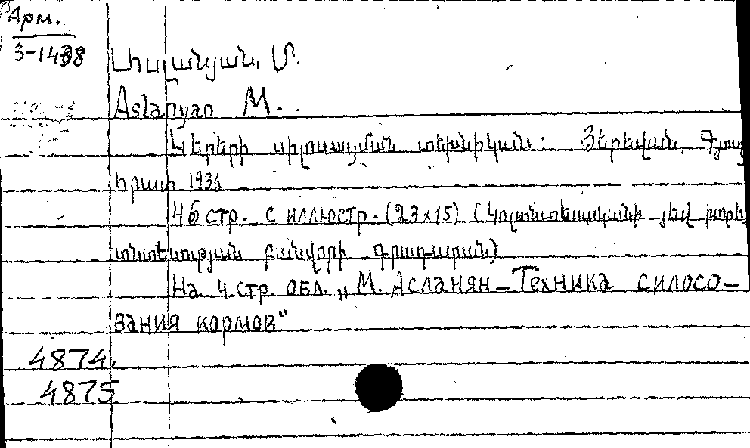 Арм.
3-1438
Ասլանյան, Մ.
Aslanyan M.
Կերերի սիլոսացման տեխնիկան: Յերեվան, Գյուղ
հրատ 1934
46 стр. с иллюстр. (23x15) (Կոլտնտեսականի յեվ խորհ
տնտեսության բանվորի գրադարան)
На 4 стр. обл. „М. Асланян – Техника силосо-
вания кормов"
4874.
4875